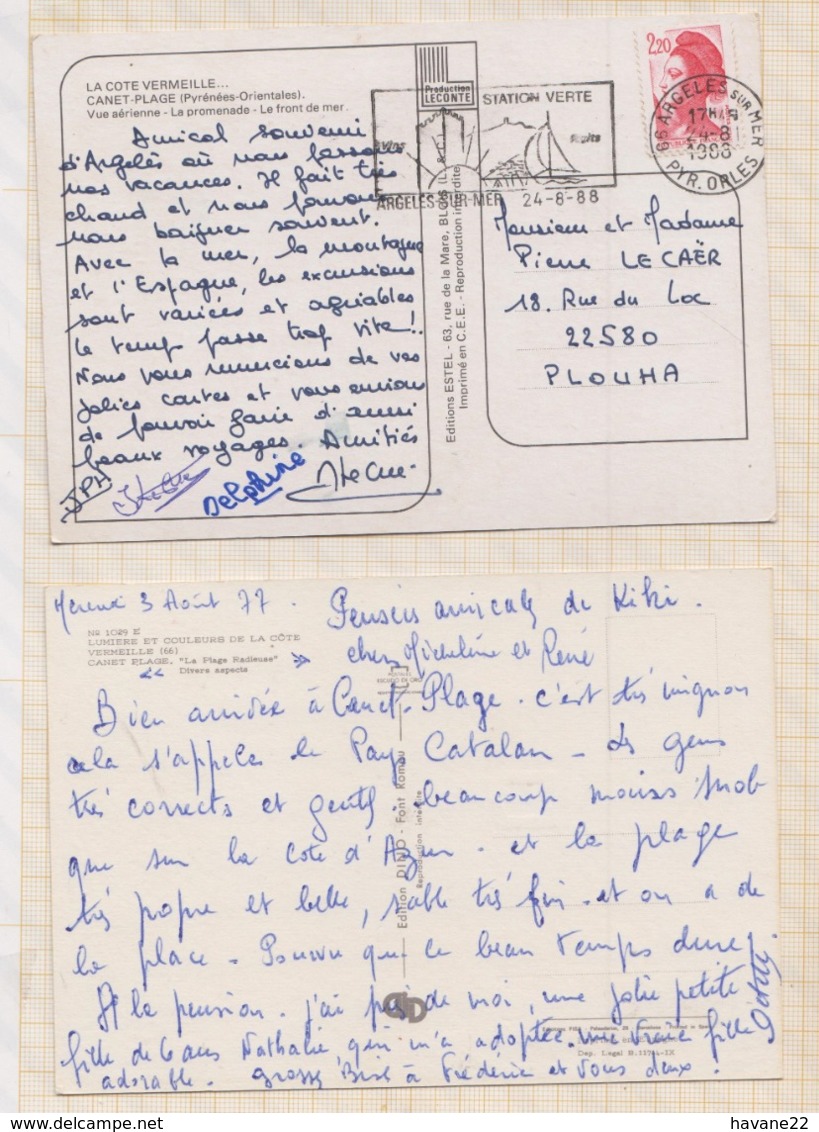 LA COTE VERMEILLE...
CANET-PLAGE (Pyrénées-Orientales).
Vue aérienne - La promenade - Le front de mer.
Amical souvenir
d'Argelès où nous passons
nos vacances. Il fait très
chaud et nous pouvons
nous baigner souvent.
Avec la mer, la montagne
et l'Espagne, les excursions
sont variées et agréables
le temps passe trop vite !
Nous vous remercions de vos
jolies cartes et vous envions
de pouvoir faire d'aussi
beaux voyages. Amitiés
JPH
Delphine
Production
LECONTE
Editions ESTEL - 63, rue de la Mare, BLOIS
Imprimé en C.E.E. - Reproduction interdite
STATION VERTE
ARGELES-SUR-MER 24-8-88
2,20
66 ARGELES SUR MER
17H
24-8
1988
PYR. ORLES
Monsieur et Madame
Pierre LE CAËR
18. Rue du Loc
22580
PLOUHA
Mercredi 3 Août 77.
Pensées amicales de Kiki.
chez Micheline et René
No 1029 E
LUMIERE ET COULEURS DE LA CÔTE
VERMEILLE (66)
CANET PLAGE, "La Plage Radieuse"
Divers aspects
Bien arrivée à Canet-Plage. c'est très mignon
cela s'appelle le Pays Catalan - Les gens
très corrects et gentils. beaucoup moins snob
que sur la Cote d'Azur. et la plage
très propre et belle, sable très fin. et on a de
la place. Pourvu que ce beau temps dure!
A la pension. j'ai près de moi, une jolie petite
fille de 6 ans Nathalie qui m'a adoptée. une vraie fille
adorable. Grosse Bise à Frédéric et vous deux.
Edition DINO - Font Romeu
Reproduction interdite
Dep. Legal B.
havane22